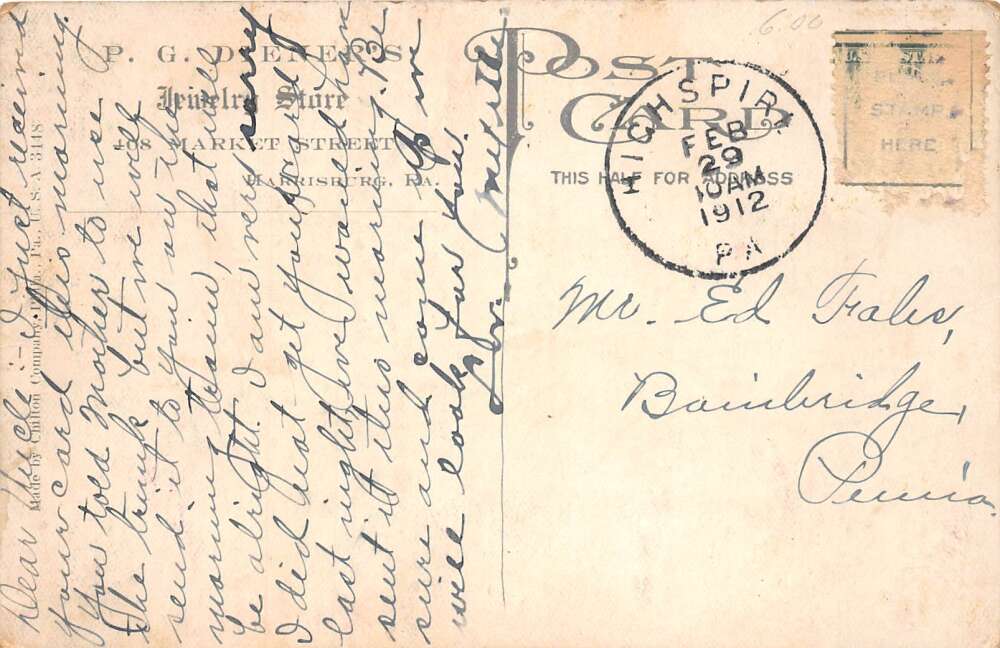 P. G. DIENER'S
Jewelry Store
408 MARKET STREET
HARRISBURG, PA.
POST CARD
THIS HALF FOR ADDRESS
PLACE
STAMP
HERE
6.00
HIGHSPIRE
FEB
29
10 AM
1912
PA
Mr. Ed Fabs,
Bainbridge,
Penn'a
Made by Chilton Company, Phila., Pa., U.S.A 3148
Dear Uncle :- Just received
your card this morning
You told Mother to use
the trunk but we will
send it to you on the
morning train, that will
be alright. I am very sorry
I did not get your card
last night, we would have
sent it this morning. Be
sure and come up we
will look for you.